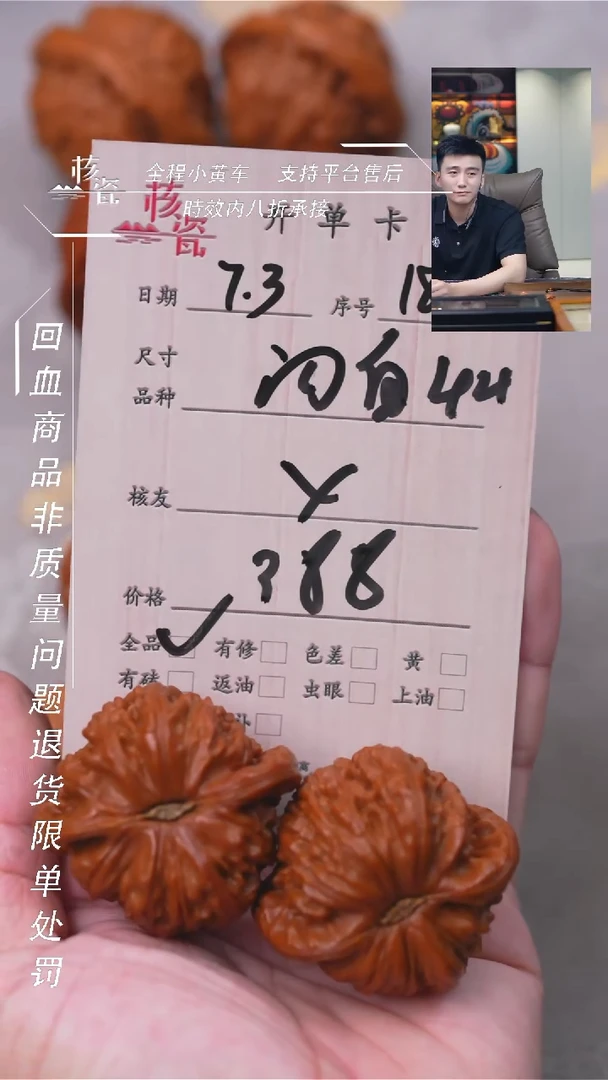 核瓷
全程小黄车 支持平台售后
時效内八折承接
核瓷
开单卡
日期 7.3 序号 18
尺寸
品种 闷白44
核友
价格 388
全品 有修 色差 黄
有硅 返油 虫眼 上油
回血商品非质量问题退货限单处罚